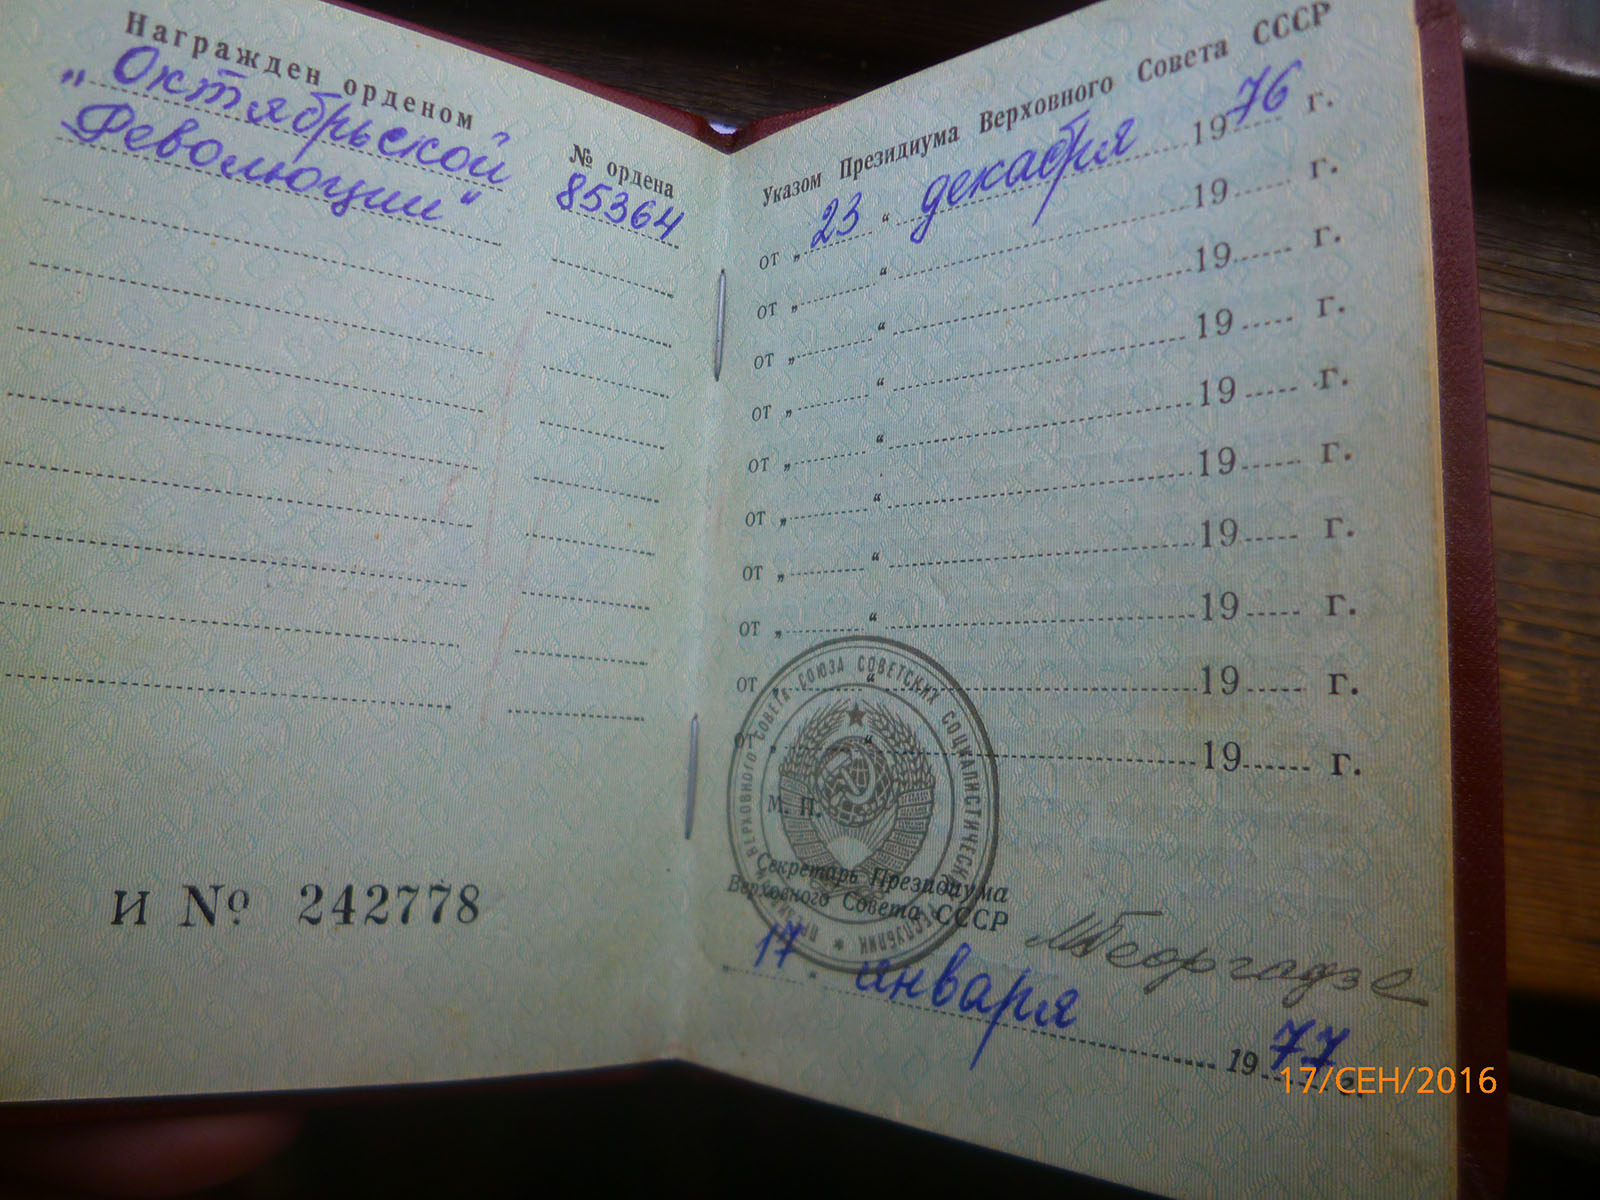 Награжден орденом
„ Октябрьской
Революции“
№ ордена
85364
И № 242778
Указом Президиума Верховного Совета СССР
от „ 23 “ декабря 1976 г.
от „ “ 19 г.
от „ “ 19 г.
от „ “ 19 г.
от „ “ 19 г.
от „ “ 19 г.
от „ “ 19 г.
от „ “ 19 г.
от „ “ 19 г.
от „ “ 19 г.
М. П.
ПРЕЗИДИУМ ВЕРХОВНОГО СОВЕТА СОЮЗА СОВЕТСКИХ СОЦИАЛИСТИЧЕСКИХ РЕСПУБЛИК
Секретарь Президиума
Верховного Совета СССР
МГеоргадзе
„ 17 “ января 1977 г.
17/СЕН/2016